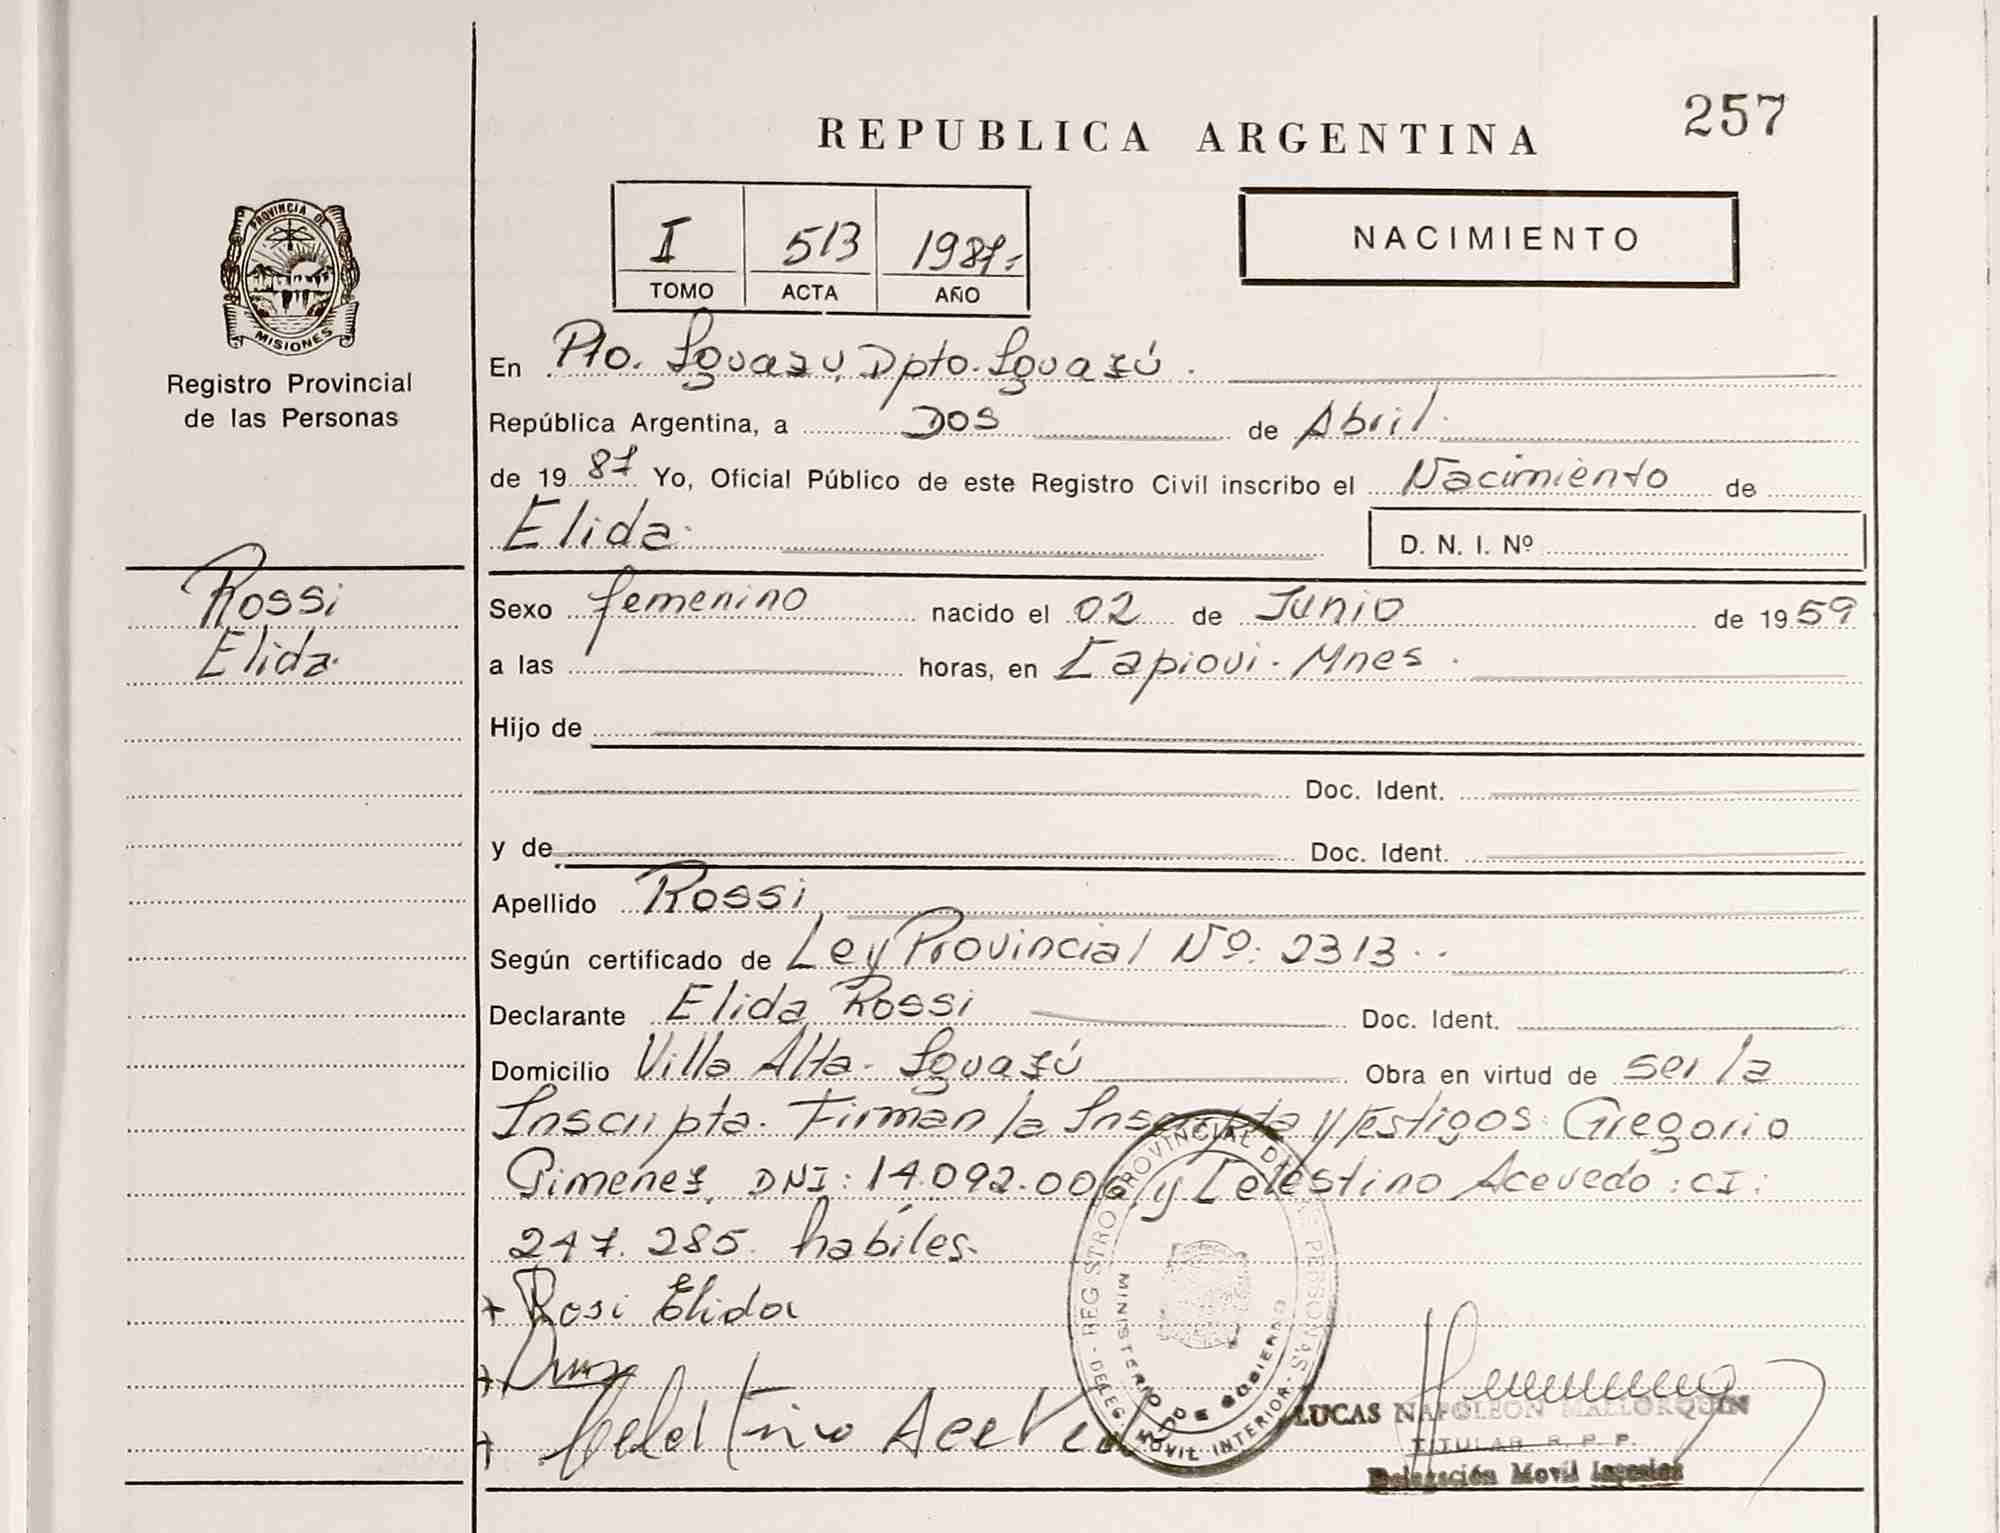 257
REPUBLICA ARGENTINA
I 513 1987.-
TOMO ACTA AÑO
NACIMIENTO
PROVINCIA DE
MISIONES
Registro Provincial
de las Personas
En Pto. Iguazú, Dpto. Iguazú.
República Argentina, a Dos de Abril.
de 1987 Yo, Oficial Público de este Registro Civil inscribo el Nacimiento de
Elida.
D. N. I. Nº
Rossi
Elida.
Sexo femenino nacido el 02 de Junio de 1959
a las horas, en Capiovi - Mnes.
Hijo de
Doc. Ident.
y de Doc. Ident.
Apellido Rossi
Según certificado de Ley Provincial Nº: 2313..
Declarante Elida Rossi Doc. Ident.
Domicilio Villa Alta - Iguazú Obra en virtud de ser la
Inscripta. Firman la Inscripta y testigos: Gregorio
Gimenez, DNI: 14.092.006 y Celestino Acevedo: CI:
247.285. habiles.
+ Rosi Elida
+
+ Celestino Acevedo
REGISTRO PROVINCIAL DE LAS PERSONAS
MINISTERIO DE GOBIERNO
DELEG. MOVIL INTERIOR
LUCAS NAPOLEON MALLORQUIN
TITULAR R. P. P.
Delegación Movil